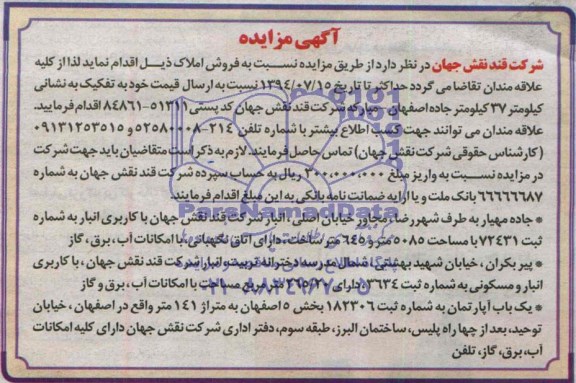 آگهی مزایده
شرکت قند نقش جهان در نظر دارد از طریق مزایده نسبت به فروش املاک ذیل اقدام نماید لذا از کلیه
علاقه مندان تقاضا می گردد حداکثر تا تاریخ ۱۳۹۴/۰۷/۱۵ نسبت به ارسال قیمت خود به تفکیک به نشانی
کیلومتر ۳۷ کیلومتر جاده اصفهان - مبارکه شرکت قند نقش جهان کد پستی ۵۱۳۱۱-۸۴۸۶۱ اقدام فرمایید.
علاقه مندان می توانند جهت کسب اطلاع بیشتر با شماره تلفن ۲۱۴-۵۲۵۸۰۰۰۸ و ۰۹۱۳۱۲۵۳۵۱۵
(کارشناس حقوقی شرکت نقش جهان) تماس حاصل فرمایند. لازم به ذکر است متقاضیان باید جهت شرکت
در مزایده نسبت به واریز مبلغ ۳۰۰،۰۰۰،۰۰۰ ریال به حساب سپرده شرکت قند نقش جهان به شماره
۶۶۶۶۶۶۸۷ بانک ملت و یا ارایه ضمانت نامه بانکی به این مبلغ اقدام فرمایند.
* جاده مهیار به طرف شهررضا، مجاور خیابان اصلی، انبار شرکت قند نقش جهان با کاربری انبار به شماره
ثبت ۷۲۴۳۱ با مساحت ۵۰۸۵ متر و ۶۴۵ متر ساخت، دارای اتاق نگهبانی، با امکانات آب، برق، گاز
* پیر بکران، خیابان شهید بهشتی، شمال مدرسه دخترانه تربیت، انبار شرکت قند نقش جهان، با کاربری
انبار و مسکونی به شماره ثبت ۱۳۶۳۴ دارای ۲۶۵/۲۷ متر مربع مساحت با امکانات آب، برق و گاز
* یک باب آپارتمان به شماره ثبت ۱۸۲۳۰۶ بخش ۵ اصفهان به متراژ ۱۴۱ متر واقع در اصفهان، خیابان
توحید، بعد از چهار راه پلیس، ساختمان البرز، طبقه سوم، دفتر اداری شرکت نقش جهان دارای کلیه امکانات
آب، برق، گاز، تلفن
ParsNamadData